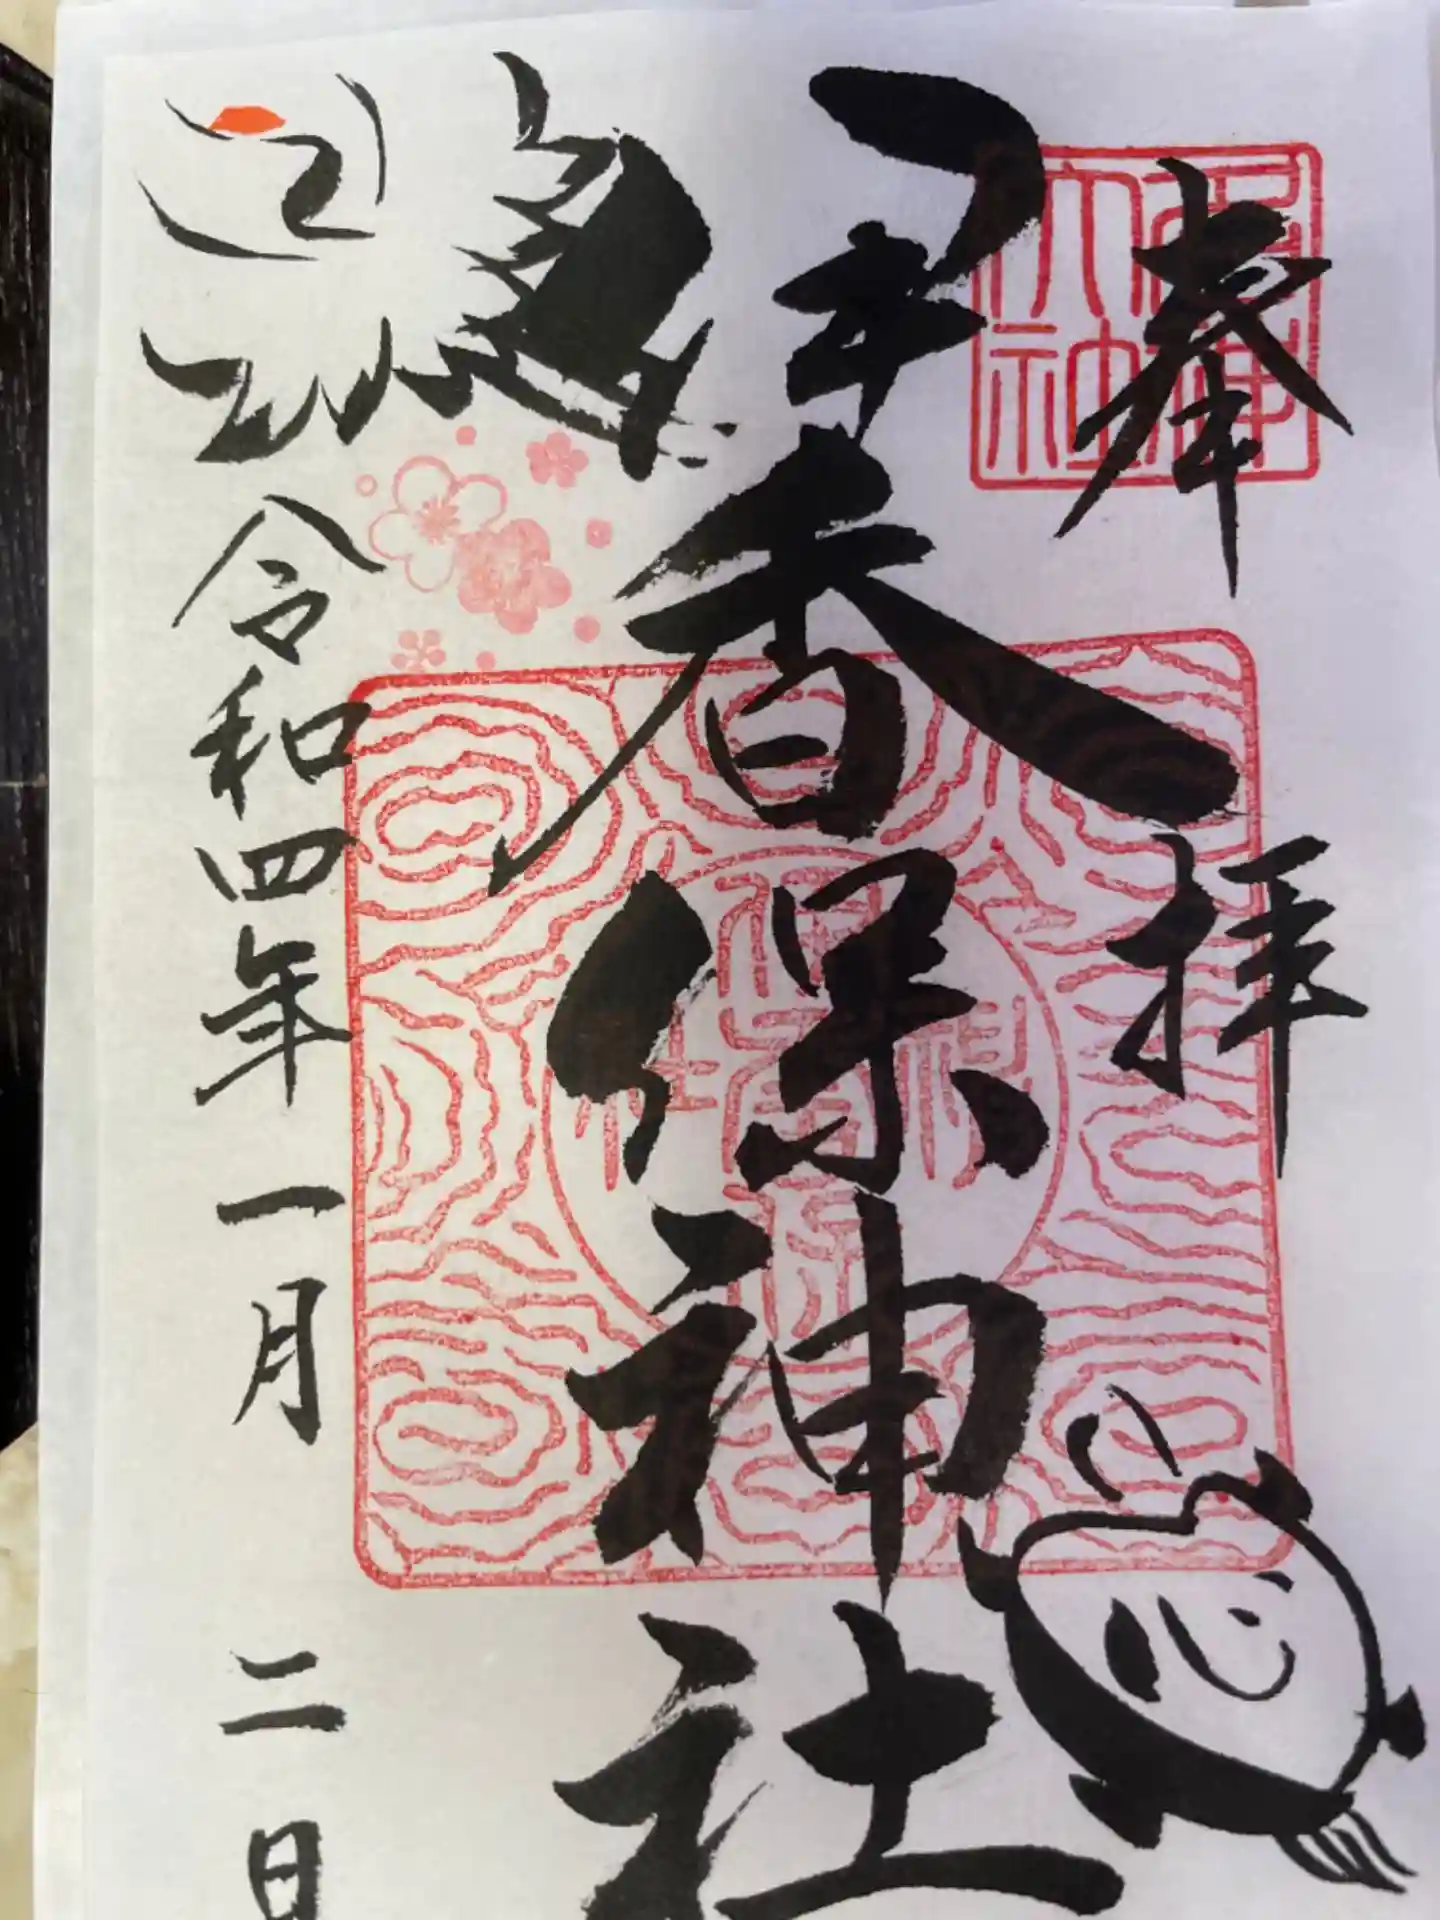 奉拝
伊香保神社
令和四年一月二日